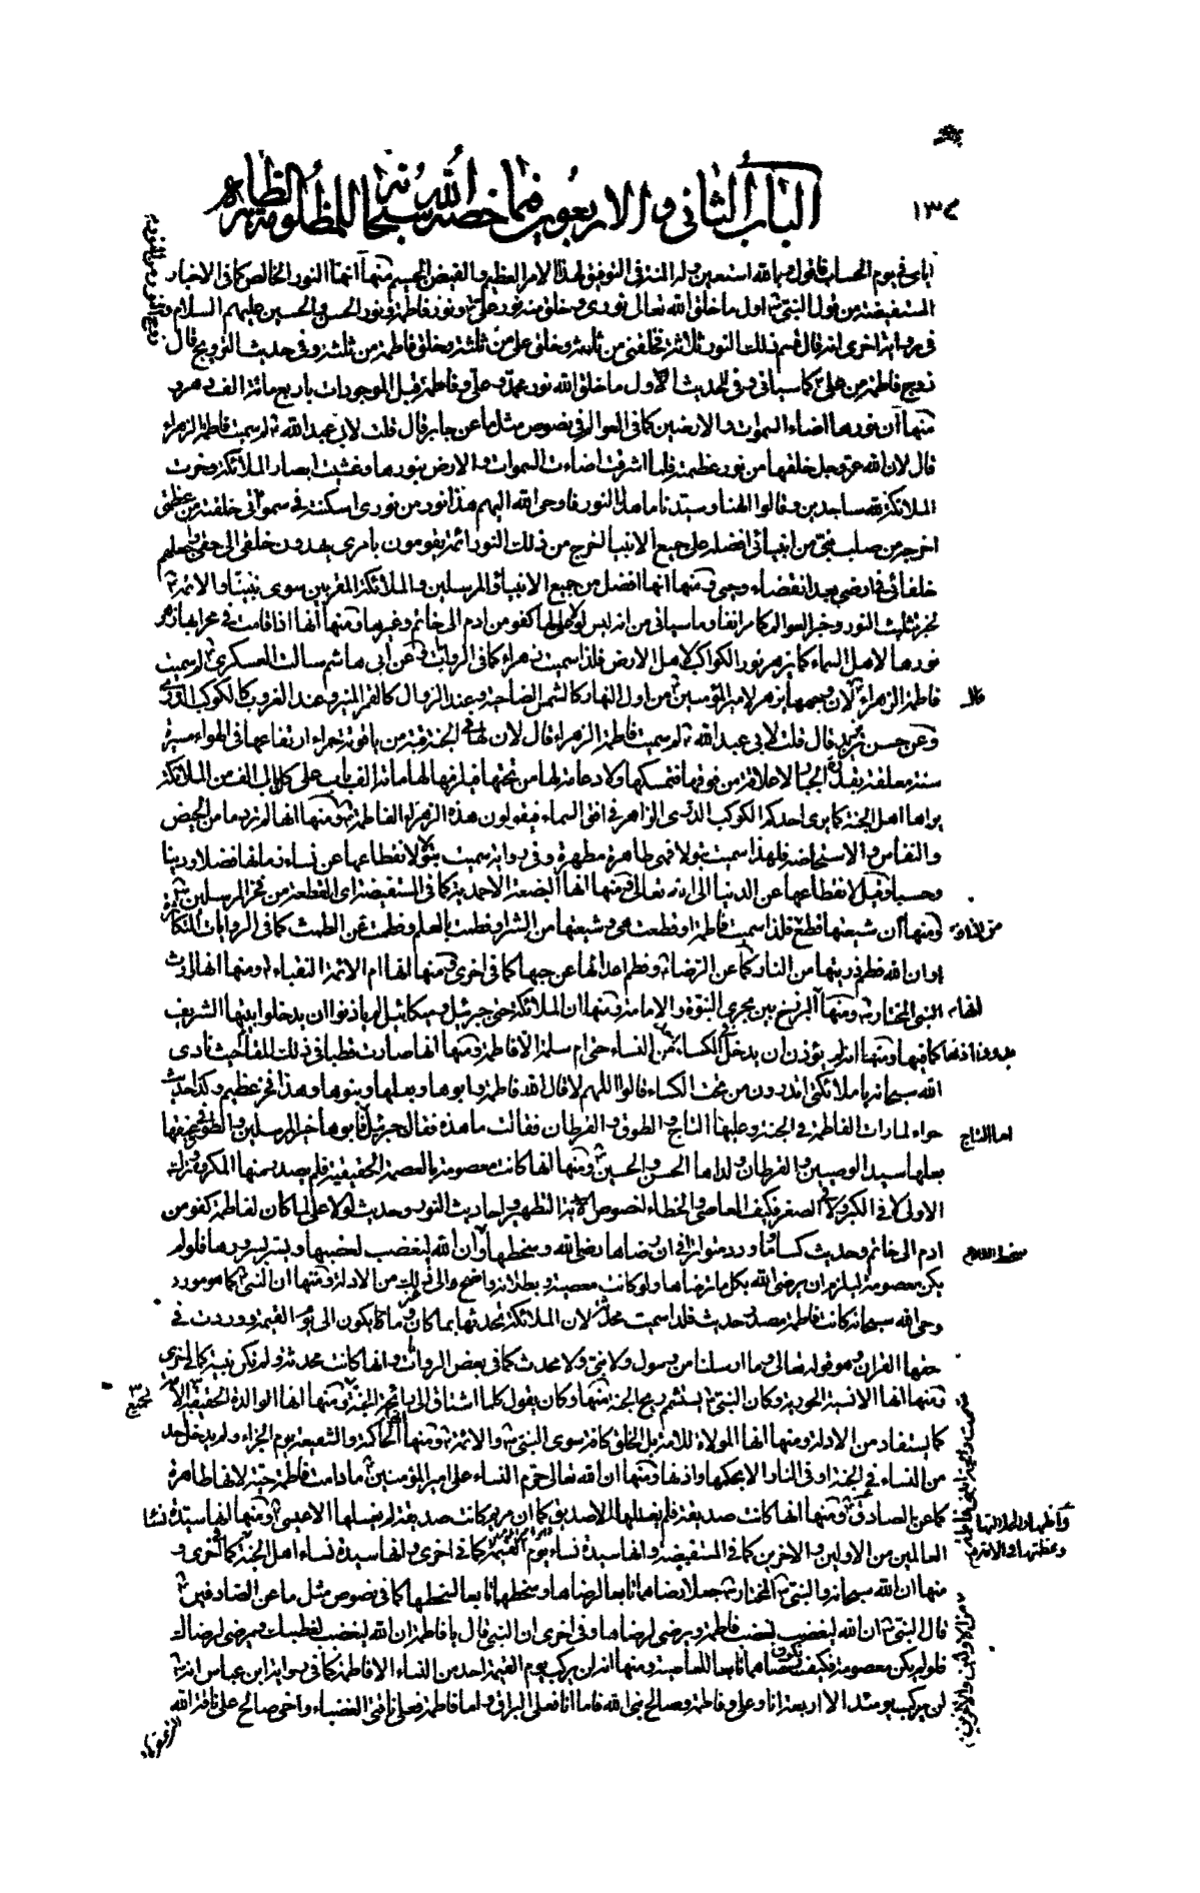 ١٣٤
الباب الثاني والاربعون فيما خصه الله سبحانه للمظلومة الطاهرة
اياى فى يوم الحساب فاقول وبالله استعين وله المنة فى التوفيق لهذا الامر العظيم والفيض الجسيم منها انها النور الخالص كما فى الاخبار
المستفيضة من قول النبى ص اول ما خلق الله تعالى نورى وخلق منه نور على ع ونور فاطمة ونور الحسن والحسين عليهم السلام و
فى رواية اخرى انه قال قسم ذلك النور ثلاثة فخلقنى من ثلثه وخلق على من ثلثه وخلق فاطمة من ثلثه وفى حديث التزويج قال
زوج فاطمة من على ع كما سياتى وفى الحديث الاول ما خلق الله نور محمد وعلى وفاطمة قبل الموجودات باربع مائة الف دهر و
منها ان نورها اضاء السموات والارضين كما فى العوالم فى نصوص مثل ما عن جابر قال قلت لابى عبد الله ع لم سميت فاطمة الزهراء
قال لان الله عز وجل خلقها من نور عظمته فلما اشرقت اضاءت السموات والارض بنورها وغشيت ابصار الملائكة وخرت
الملائكة لله ساجدين وقالوا الهنا وسيدنا ما هذا النور فاوحى الله اليهم هذا نور من نورى اسكنته فى سموائى خلقته من عظمتى
اخرجه من صلب نبى من انبيائى افضله على جميع الانبياء اخرج من ذلك النور ائمة يقومون بامرى يهدون خلقى الى حقى واجعلهم
خلفائى فى ارضى بعد انقضاء وحيى ومنها انها افضل من جميع الانبياء والمرسلين والملائكة المقربين سوى نبينا والائمة ع
لخبر تثليث النور وخبر العوالم كما مر انفا وما سياتى من انه ليس لولا على لها كفو من ادم الى خاتم وغيرها ومنها انها اذا قامت فى محرابها زهر
نورها لاهل السماء كما يزهر نور الكواكب لاهل الارض فلذا سميت زهراء كما فى الروايات وعن ابى هاشم سالت العسكرى ع لم سميت
فاطمة الزهراء قال لان وجهها يزهر لامير المؤمنين ع من اول النهار كالشمس الضاحية وعند الزوال كالقمر المنير وعند الغروب كالكوكب الدرى
وعن حسن بن يزيد قال قلت لابى عبد الله ع لم سميت فاطمة الزهراء قال لان لها فى الجنة قبة من ياقوتة حمراء ارتفاعها فى الهواء مسيرة
سنة معلقة بقدرة الجبار لا علاقة من فوقها فتمسكها ولا دعامة لها من تحتها فيلزمها لها مائة الف باب على كل باب الف من الملائكة
يراها اهل الجنة كما يرى احدكم الكوكب الدرى الزاهر فى افق السماء فيقولون هذه الزهراء لفاطمة ع ومنها انها لم تر دما من الحيض
والنفاس والاستحاضة فلهذا سميت بتولا فهى طاهرة مطهرة وفى رواية سميت بتولا لانقطاعها عن نساء زمانها فضلا ودينا
وحسبا وقيل لانقطاعها عن الدنيا الى الله تعالى ومنها انها البضعة الاحمدية كما فى المستفيضة اى القطعة من فخر المرسلين
ومنها ان شيعتها فطم فلذا سميت فاطمة او فطمت هى وشيعتها من الشر وفطمت بالعلم وفطمت عن الطمث كما فى الروايات المتكاثرة
او ان الله فطم ذريتها من النار كما عن الرضا ع وفطم اعدائها عن حبها كما فى اخرى ومنها انها ام الائمة النقباء ع ومنها انها لوث
النبى المختار ص ومنها انها البرزخ بين مجرى النبوة والامامة ومنها ان الملائكة حتى جبرئيل وميكائيل لم ياذنوا ان يدخلوا بيتها الشريف
بدون اذنها كما فيها ومنها انه لم يؤذن ان يدخل الكساء من النساء حتى ام سلمة الا فاطمة ومنها انها صارت قطبا فى ذلك المقام حيث نادى
الله سبحانه يا ملائكتى اتدرون من تحت الكساء قالوا اللهم لا قال الله فاطمة وابوها وبعلها وبنوها وهذا فخر عظيم وكذا حديث
حواء لما رات الفاطمة فى الجنة وعليها التاج والطوق والقرطان فقالت ما هذه فقال جبرئيل اما التاج فابوها خير المرسلين والطوق فى عنقها
بعلها سيد الوصيين والقرطان ولداها الحسن والحسين ع ومنها انها كانت معصومة بالعصمة الحقيقية فلم يصدر منها المكروه وترك
الاولى لا فى الكبر ولا فى الصغر فكيف المعاصى والخطاء لخصوص الاية التطهير واحاديث النور وحديث لولا على لما كان لفاطمة كفو من
ادم الى خاتم وحديث كساء وما ورد متواترا فى ان رضاها رضى الله وسخطها سخط الله وان الله ليغضب لغضبها ويسر بسرورها فلو لم
يكن معصومة لم يلزم ان يرضى الله بكل ما ترضاها ولو كانت معصية وبطلانه واضح والى غير ذلك من الادلة ومنها ان النبى ع كما هو مورد
وحى الله سبحانه كانت فاطمة مصدر حديث فلذا سميت محدثة لان الملائكة تحدثها بما كان وما يكون الى يوم القيمة ووردت فى
حقها القران وهو قوله تعالى وما ارسلنا من رسول ولا نبى ولا محدث كما فى بعض الروايات وانها كانت محدثة ولم تكن نبية كما فى اخرى
ومنها انها الانسية الحورية وكان النبى ص يستشم ريح الجنة منها وكان يقول كلما اشتاق الى رائحة الجنة ومنها انها الوالدة الحقيقية لجميع الامة
كما يستفاد من الادلة ومنها انها المولاة للامة بل الخلق كافة سوى النبى ص والائمة ع ومنها انها الحاكمة والشفيعة يوم الجزاء ولم يدخل احد
من النساء فى الجنة او فى النار الا بحكمها واذنها ومنها ان الله تعالى حرم النساء على امير المؤمنين ع ما دامت فاطمة حية لانها طاهرة
كما عن الصادق ع ومنها انها كانت صديقة فلم يغسلها الا صديق كما ان مريم كانت صديقة لم يغسلها الا عيسى ع ومنها انها سيدة نساء
العالمين من الاولين والاخرين كما فى المستفيضة وانها سيدة نساء يوم القيمة كما فى اخرى وانها سيدة نساء اهل الجنة كما فى اخرى و
منها ان الله سبحانه والنبى المختار ص جعلا رضاهما تابعا لرضاها وسخطهما تابعا لسخطها كما فى نصوص مثل ما عن الصادقين ع
قال النبى ص ان الله ليغضب لغضب فاطمة ويرضى لرضاها وفى اخرى ان النبى قال يا فاطمة ان الله ليغضب لغضبك ويرضى لرضاك
فلو لم يكن معصومة فكيف يكون رضاهما تابعا للعاصية ومنها انه لن يركب يوم القيمة احد من النساء الا فاطمة كما فى رواية ابن عباس انه ص
لن يركب يومئذ الا اربعة انا وعلى وفاطمة وصالح نبى الله فاما انا فعلى البراق واما فاطمة فعلى ناقتى الغضباء واخى صالح على ناقة الله